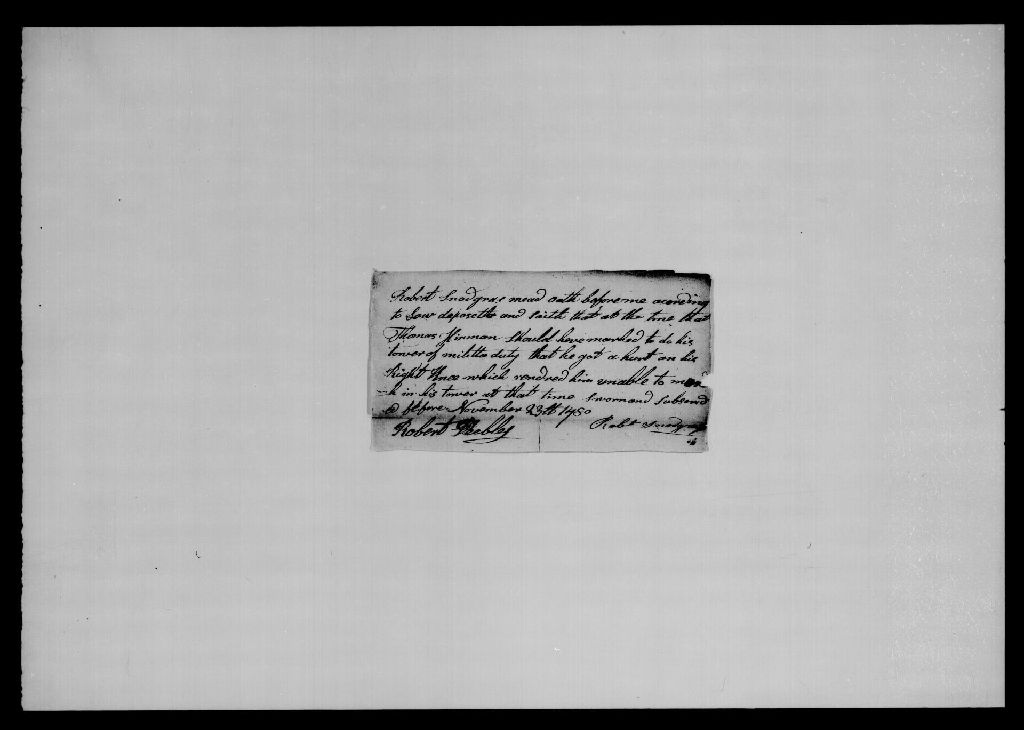 Robert Snodgras mead oath before me acording
to Low deposeth and saith that at the time that
Thomas Hinman should have marched to do his
tower of militia duty that he got a hurt on his
Right Knee which rendred him unable to mar
ch in his tower at that time Swornand Subscrid
before November 23th 1780
Robert Peebles Robt Snodgrass